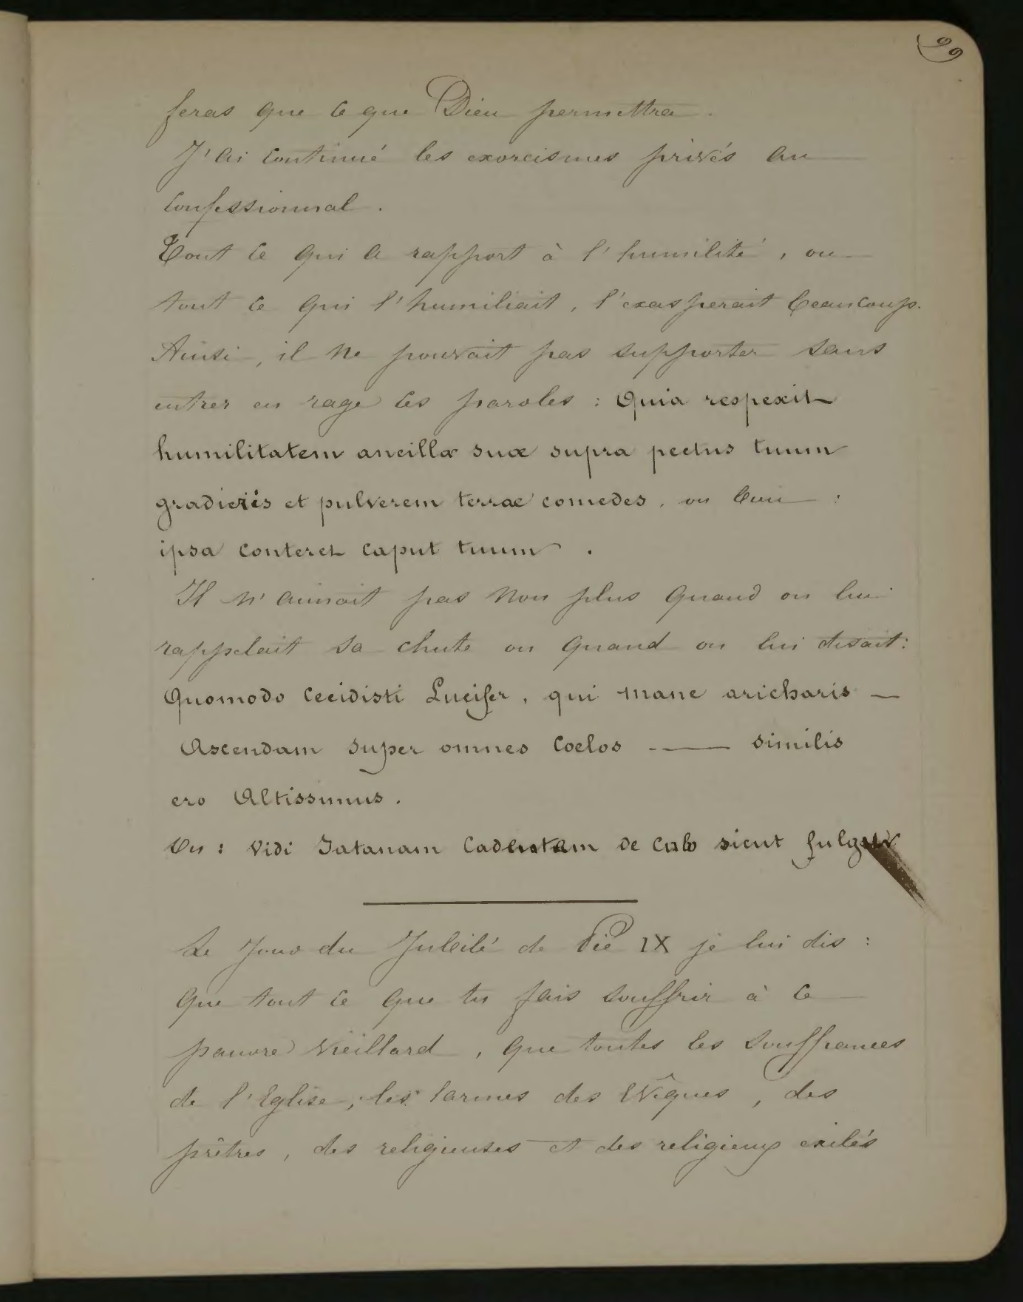 99
feras que ce que Dieu permettra.
J'ai continué les exorcismes privés au
confessionnal.
Tout ce qui a rapport à l'humilité, ou
tout ce qui l'humiliait, l'exasperait beaucoup.
Ainsi, il ne pouvait pas supporter sans
entrer en rage les paroles : Quia respexit
humilitatem ancillæ suæ supra pectus tuum
gradieris et pulverem terrae comedes, ou bien :
ipsa conteret caput tuum.
Il n'aimait pas non plus quand on lui
rappelait sa chute ou quand on lui disait :
Quomodo cecidisti Lucifer, qui mane
Ascendam super omnes coelos —— similis
ero Altissimus.
Ou : Vidi Satanam cadentem de cælo sicut fulgur
Le Jour du Jubilé de Pie IX je lui dis :
Que tout ce que tu fais souffrir à ce
pauvre vieillard, que toutes les souffrances
de l'Eglise, les larmes des Evêques, des
prêtres, des religieuses et des religieux exilés